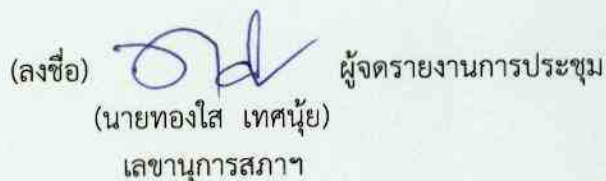 (ลงชื่อ) ผู้จดรายงานการประชุม
(นายทองใส เทศนุ้ย)
เลขานุการสภาฯ